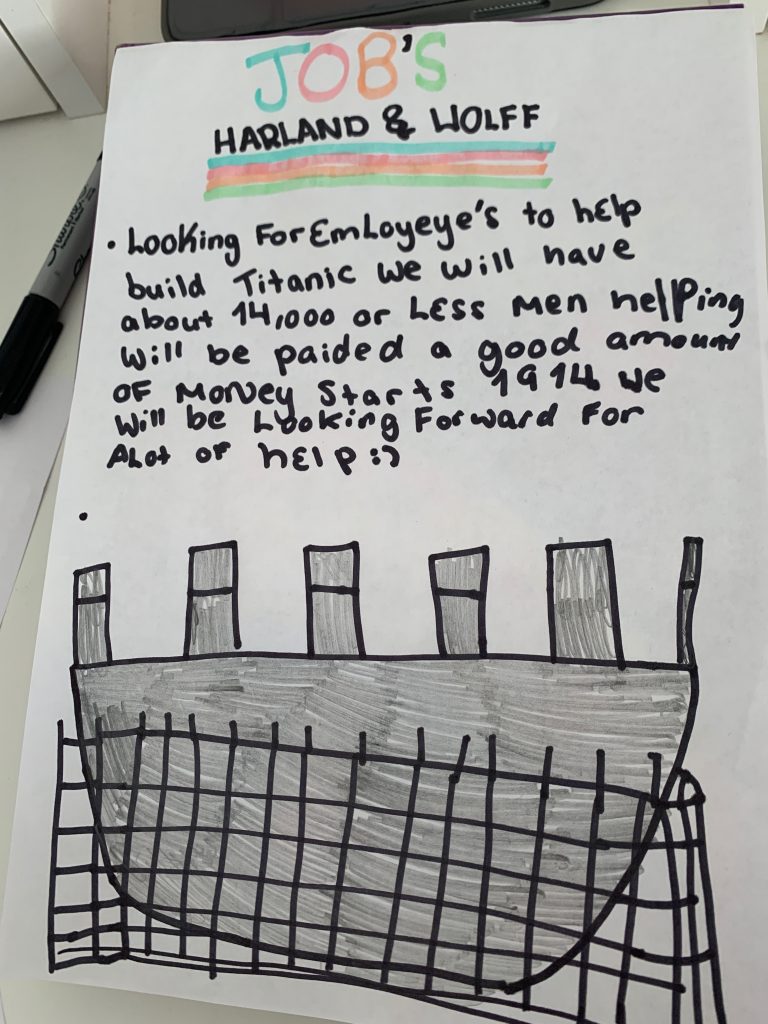 JOB'S
HARLAND & WOLFF
• Looking For EmLoyeye's to help
build Titanic we will have
about 14,000 or Less men helping
will be paided a good amount
OF Money Starts 1914 we
Will be Looking Forward For
ALot of help :)
•
Sharpie